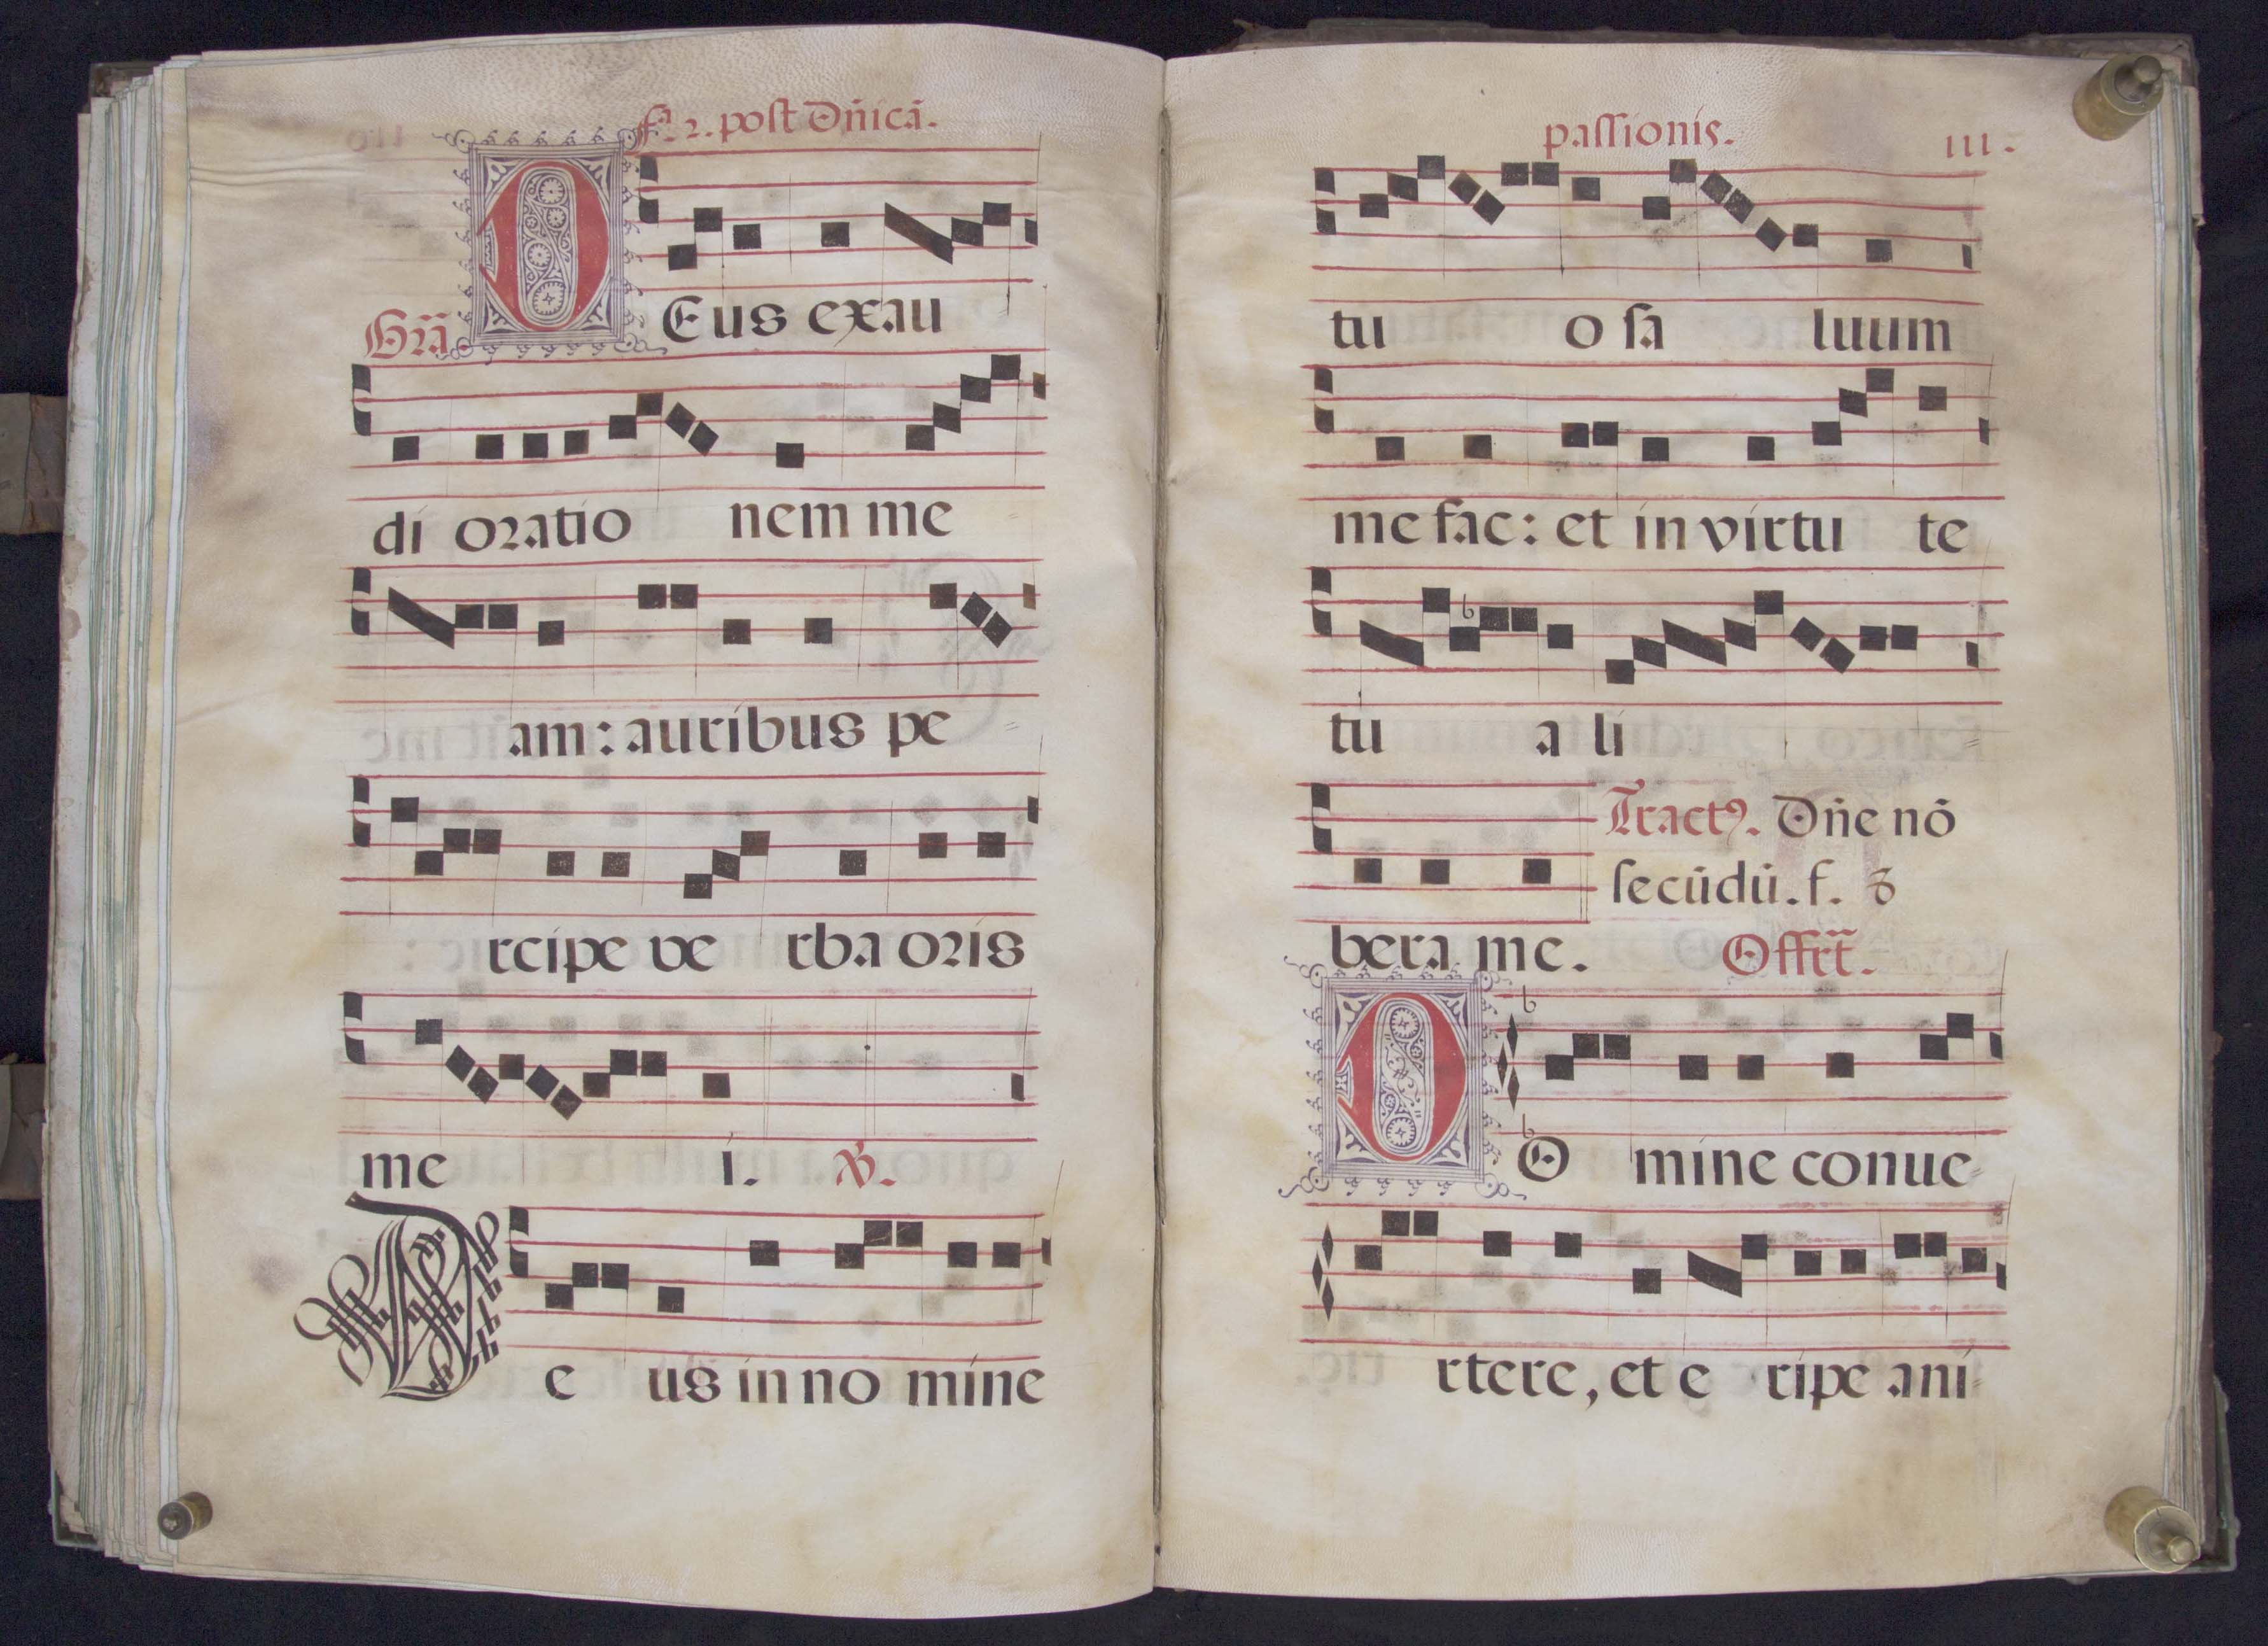 fᵃ. 2. post Dñicã.
Gra͞. D Eus exau
di oratio nem me
am: auribus pe
rcipe ve rba oris
me i. ℣.
D e us in no mine
passionis. III.
tu o sa luum
me fac: et in virtu te
tu a li
Tractꝰ. Dñe nõ
secũdũ. f. 8
bera me. Offrt͞.
D O mine conue-
rtere, et e ripe ani-